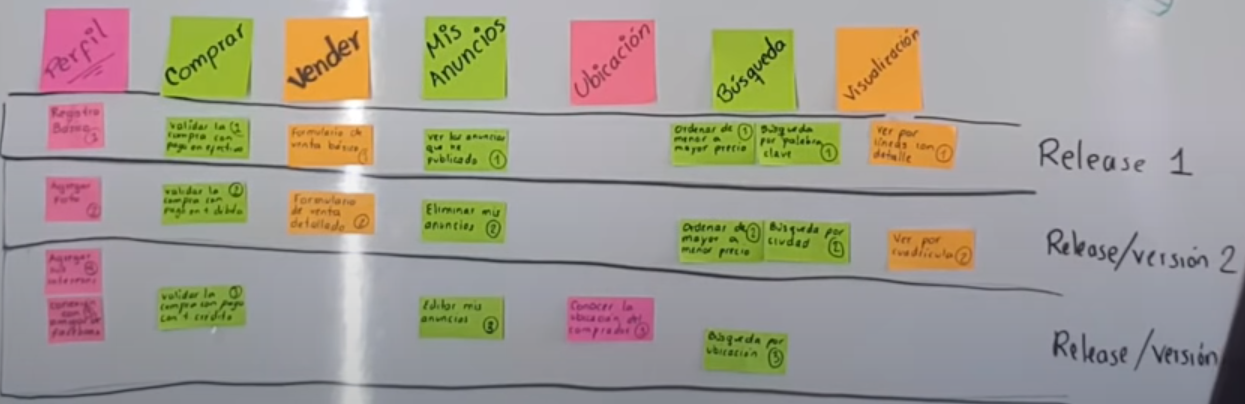 Perfil
Comprar
Vender
Mis
Anuncios
Ubicación
Búsqueda
Visualización
Registro
Básico 1
validar la 1
compra con
pago en efectivo
Formulario de
venta básico 1
ver los anuncios
que he
publicado 1
Ordenar de 1
menor a
mayor precio
Búsqueda
por palabra
clave 1
Ver por
líneas con
detalle 1
Release 1
Agregar
foto 2
validar la 2
compra con
pago en t débito
Formulario
de venta
detallado 2
Eliminar mis
anuncios 2
Ordenar de 2
mayor a
menor precio
Búsqueda por
ciudad 2
Ver por
cuadrícula 2
Release/versión 2
Agregar
mis
intereses
con
validar la 3
compra con pago
con t crédito
Editar mis
anuncios 3
Conocer la
ubicación del
comprador 3
Búsqueda por
ubicación 3
Release/versión